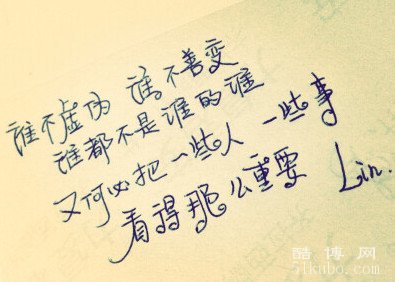 谁不虚伪 谁不善变
谁都不是谁的谁
又何必把一些人 一些事
看得那么重要 Lin.
酷博网
51kubo.com